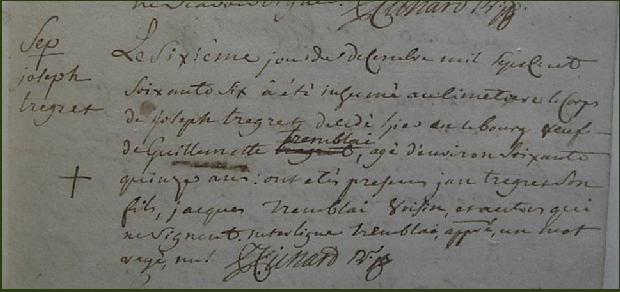 Sep
joseph
tregret
Le Sixième jour de decembre mil Sept Cent
Soixante Six à été inhumé au Cimetiere le Corps
de joseph tregret decedé hier en le bourg veuf
tremblai
de Guillemette tregret, agé d'environ Soixante
quinze ans: ont etés presens jan tregret Son
fils, jacques tremblai voisin, et autres qui
ne Signent, interligne tremblai, appré, un mot
rayé, nul